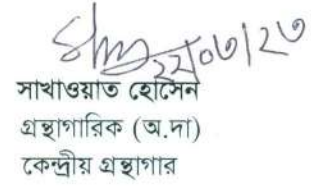 ২২/০৩/২৩
সাখাওয়াত হোসেন
গ্রন্থাগারিক (অ.দা)
কেন্দ্রীয় গ্রন্থাগার